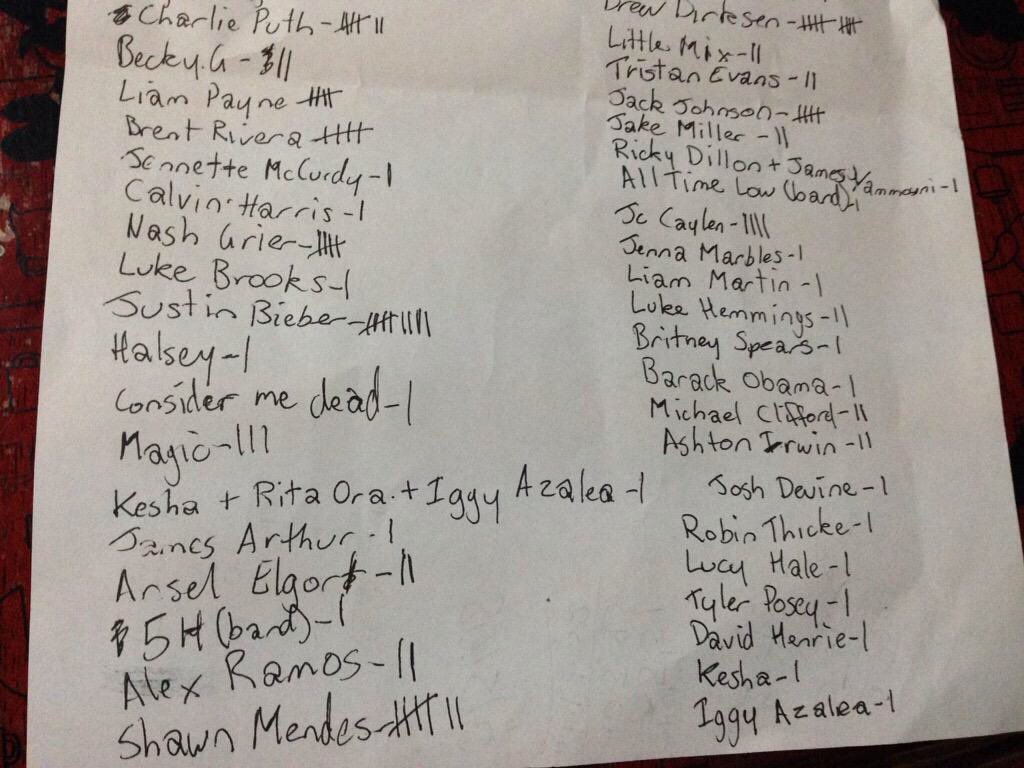 Charlie Puth - 卌 II
Becky.G - III
Liam Payne 卌
Brent Rivera 卌
Jennette McCurdy - I
Calvin Harris - I
Nash Grier - 卌
Luke Brooks - I
Justin Bieber - 卌 IIII
Halsey - I
Consider me dead - I
Magic - III
Kesha + Rita Ora + Iggy Azalea - I
James Arthur - I
Ansel Elgort - II
5H (band) - I
Alex Ramos - II
Shawn Mendes - 卌 II
Drew Dirksen - 卌 卌
Little Mix - II
Tristan Evans - II
Jack Johnson - 卌
Jake Miller - II
Ricky Dillon + James Yammouni - I
All Time Low (band) - I
Jc Caylen - IIII
Jenna Marbles - I
Liam Martin - I
Luke Hemmings - II
Britney Spears - I
Barack Obama - I
Michael Clifford - II
Ashton Irwin - II
Josh Devine - I
Robin Thicke - I
Lucy Hale - I
Tyler Posey - I
David Henrie - I
Kesha - I
Iggy Azalea - I